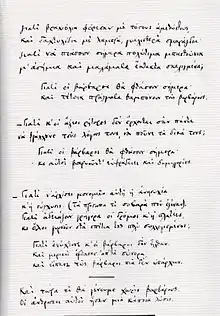 γιατί βραχιόλια φόρεσαν με τόσους αμεθύστους
και δαχτυλίδια με λαμπρά, γυαλιστερά σμαράγδια·
γιατί να πιάσουν σήμερα πολύτιμα μπαστούνια
μ' ασήμια και μαλάματα έκτακτα σκαλιγμένα;
Γιατί οι βάρβαροι θα φθάσουν σήμερα·
και τέτοια πράγματα θαμπόνουν τους βαρβάρους.
— Γιατί κ' οι άξιοι ρήτορες δεν έρχονται σαν πάντα
να βγάλουνε τους λόγους τους, να πούνε τα δικά τους;
Γιατί οι βάρβαροι θα φθάσουν σήμερα·
κι αυτοί βαριούντ' ευφράδειες και δημηγορίες.
— Γιατί ν' αρχίσει μονομιάς αυτή η ανησυχία
κ' η σύγχυσις. (Τα πρόσωπα τι σοβαρά που έγιναν).
Γιατί αδειάζουν γρήγορα οι δρόμοι κ' η πλατέες,
κι όλοι γυρνούν στα σπίτια τους πολύ συλλογισμένοι;
Γιατί ενύχτωσε κ' οι βάρβαροι δεν ήλθαν.
Και μερικοί έφθασαν απ' τα σύνορα,
και είπανε πως βάρβαροι πια δεν υπάρχουν.
Και τώρα τι θα γένουμε χωρίς βαρβάρους.
Οι άνθρωποι αυτοί ήσαν μια κάποια λύσις.